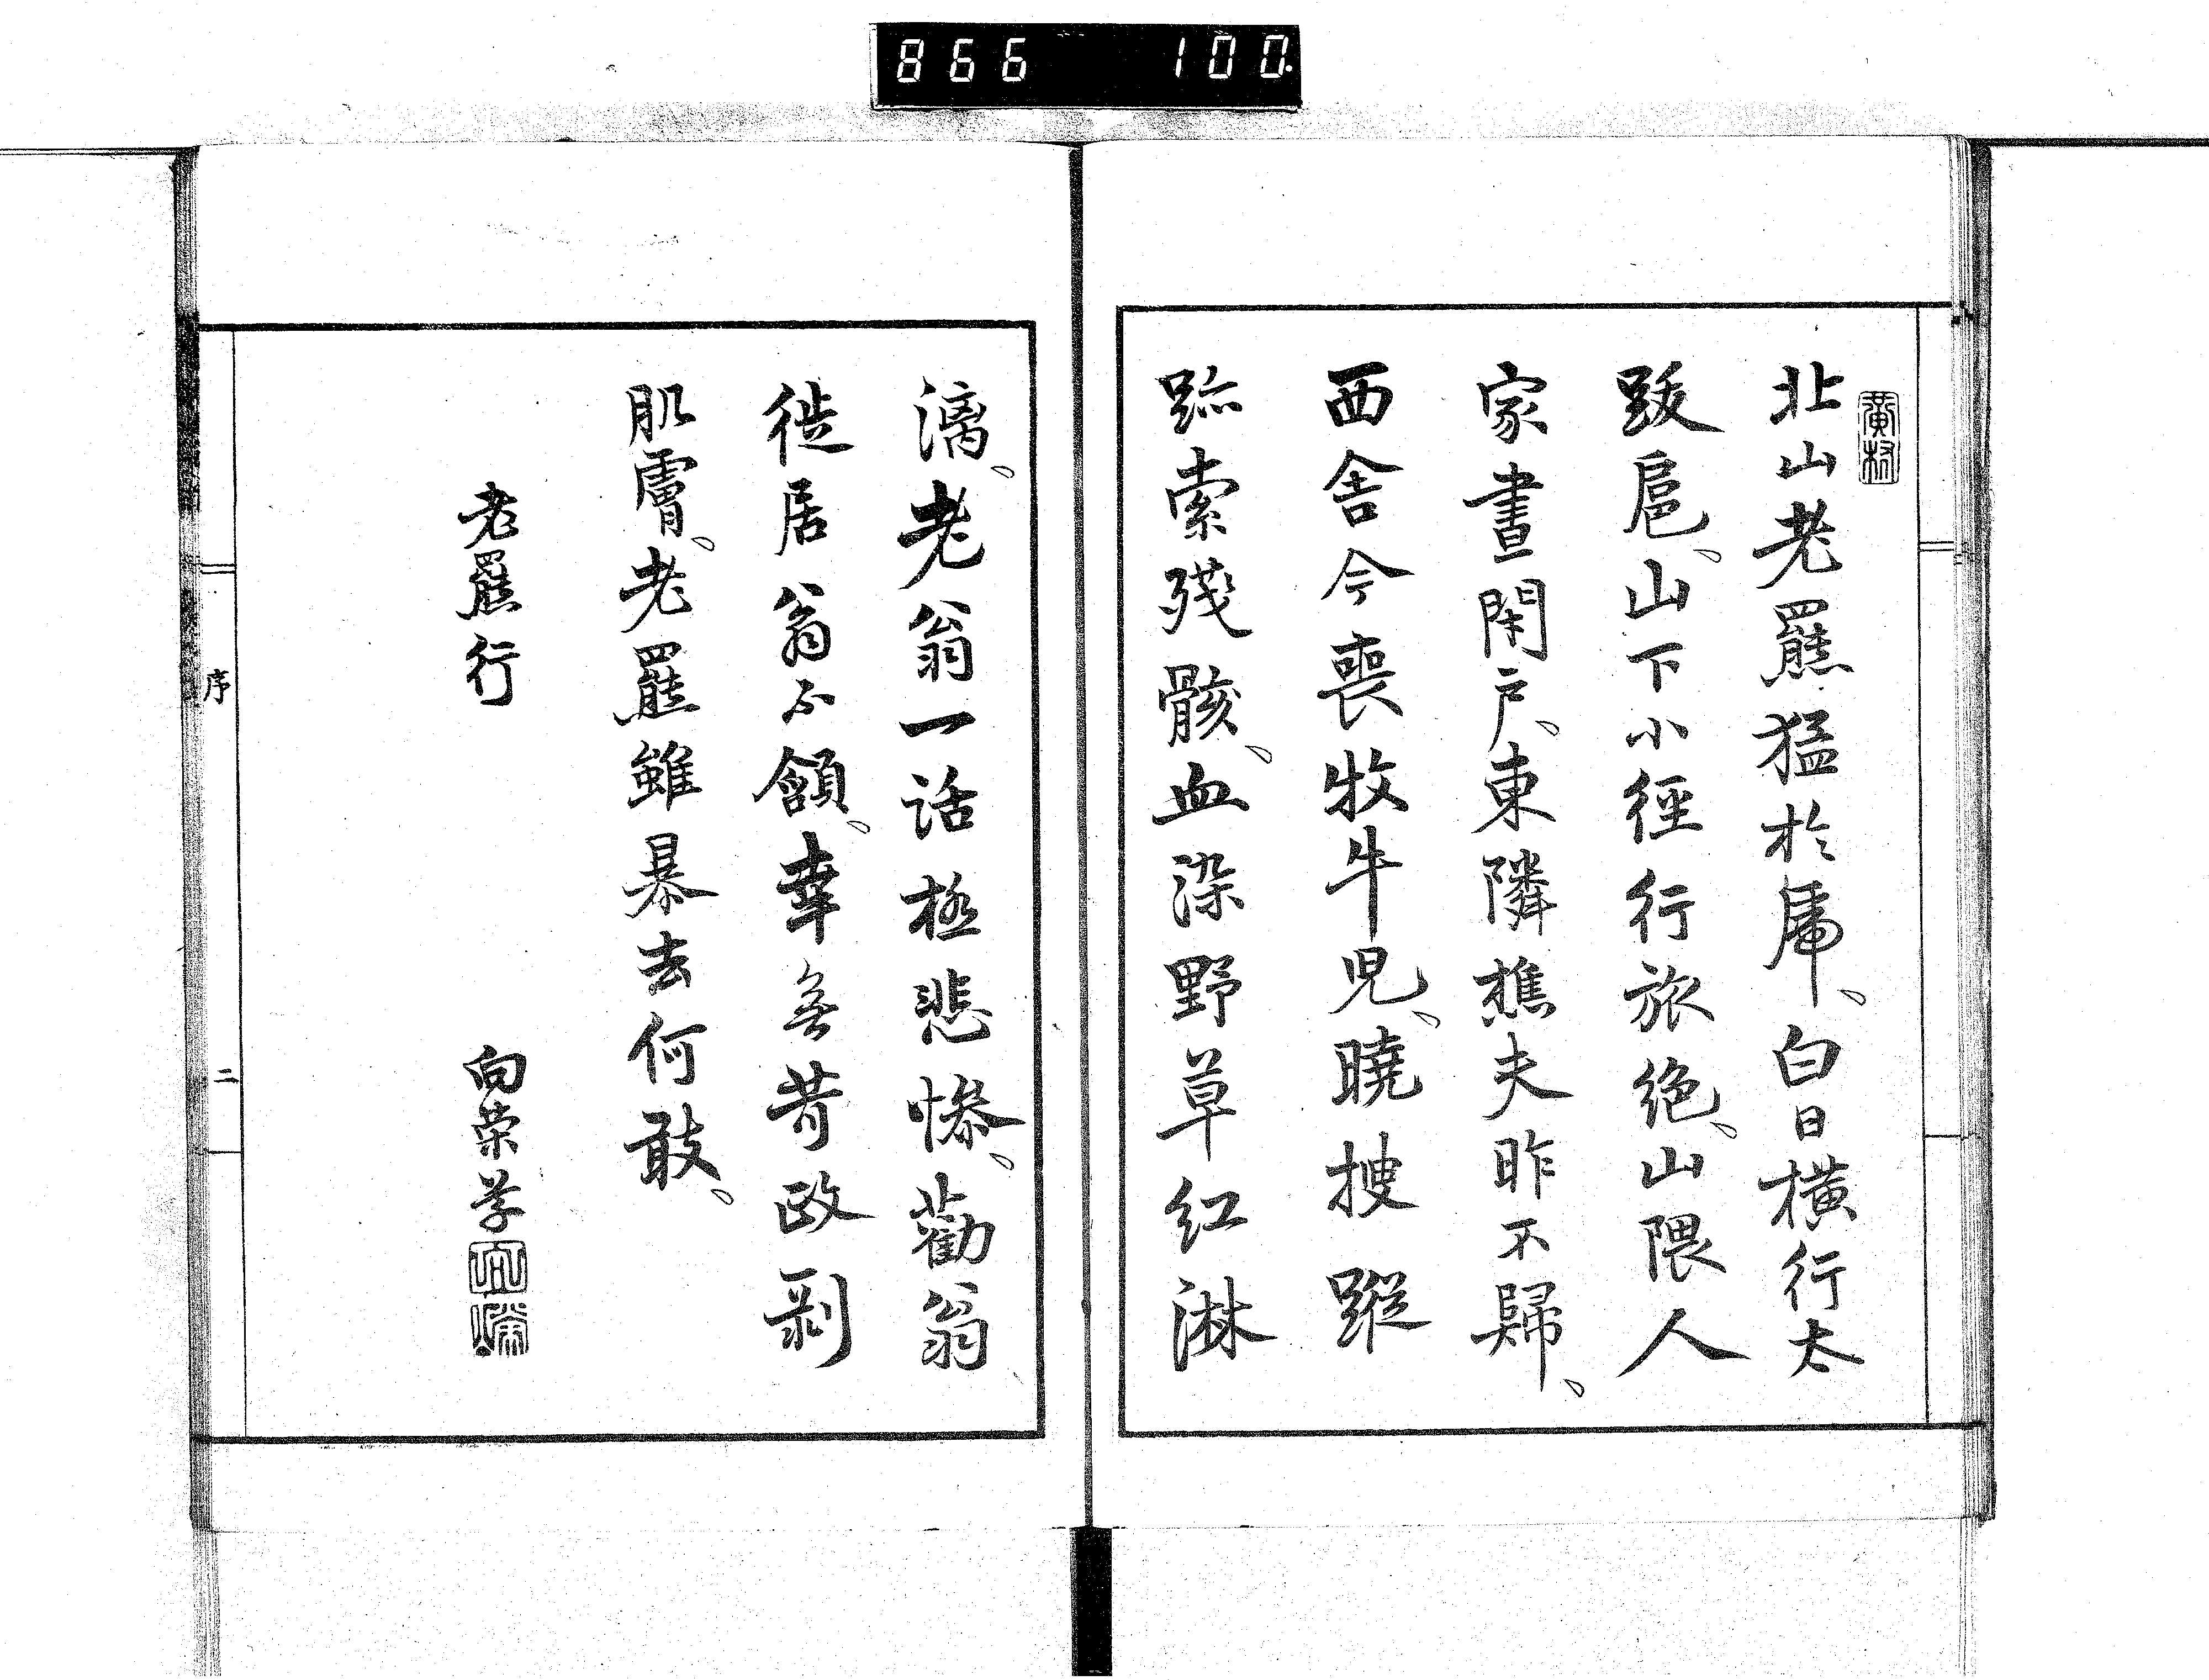 866 100.
黄村
北山老羆猛於虎、白日橫行太
跋扈、山下小徑行旅絶、山隈人
家晝閉戶、東隣樵夫昨不歸、
西舍今喪牧牛児、曉搜蹤
跡索残骸、血染野草紅淋
漓、老翁一話極悲慘、勸翁
徙居翁不頷、幸無苛政剥
肌膚、老羆雖暴去何敢、
老羆行
向榮学
序
二